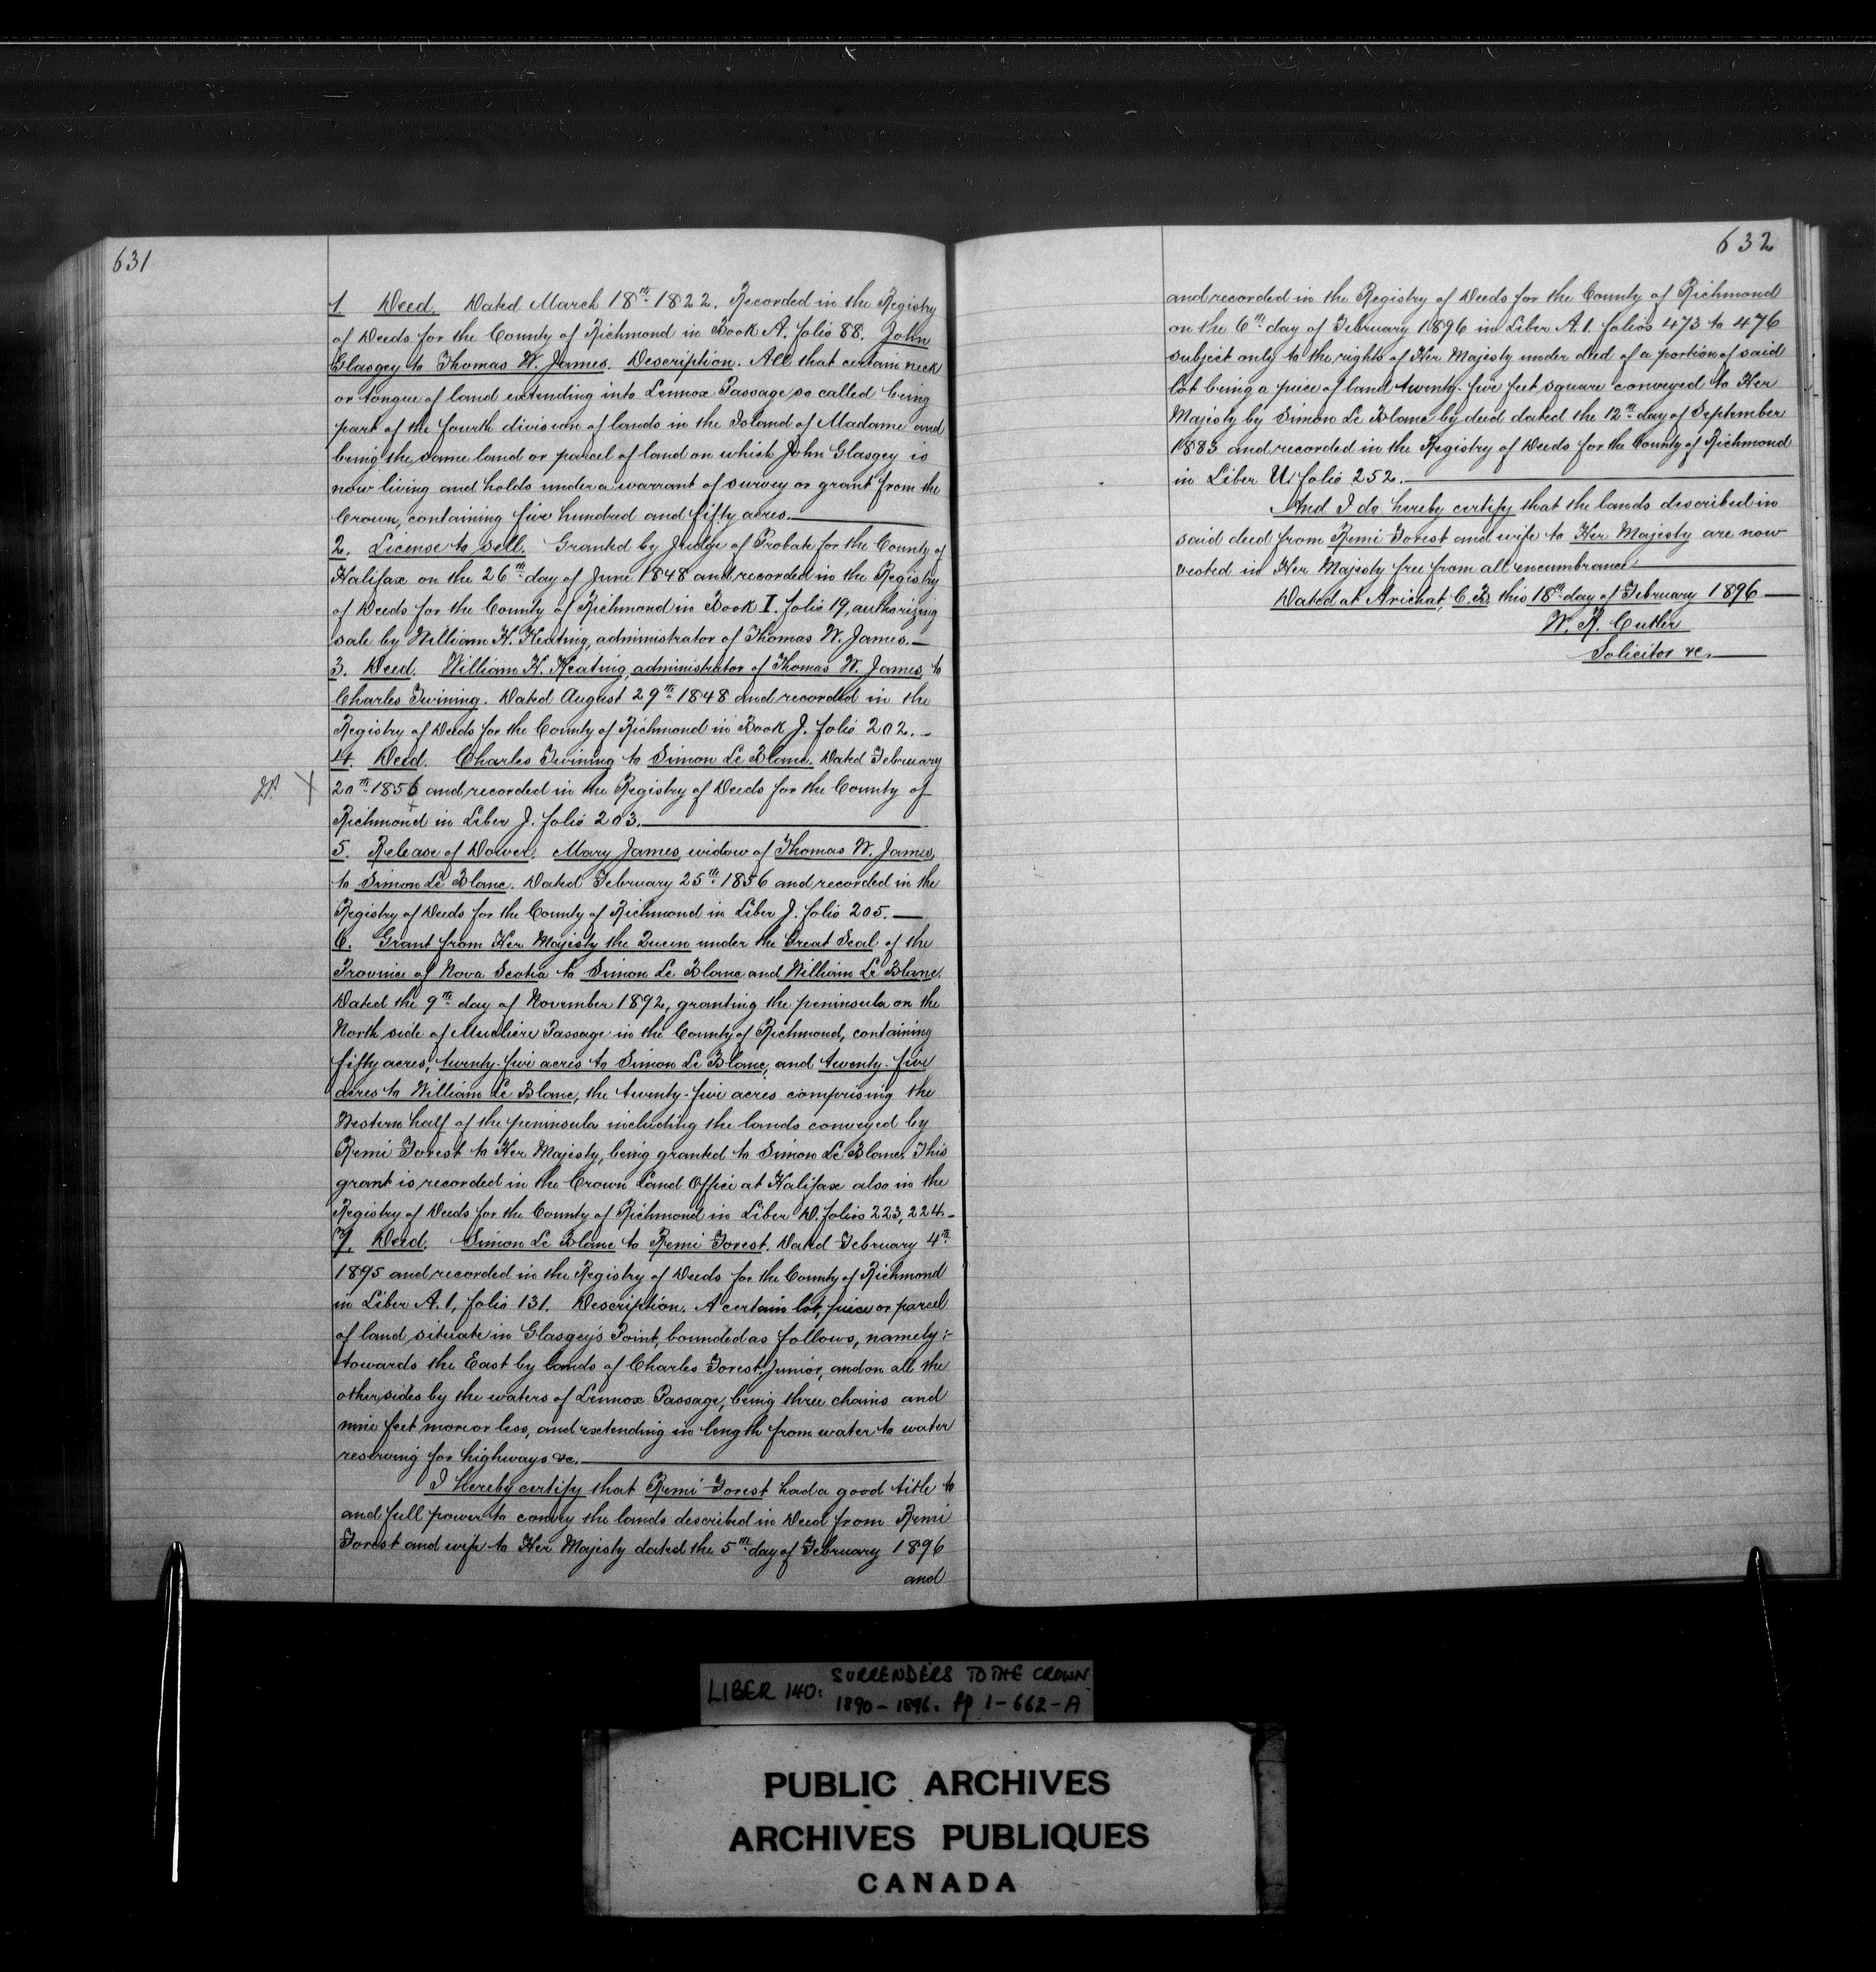 631
1. Deed. Dated March 18th 1822. Recorded in the Registry
of Deeds for the County of Richmond in Book A. folio 88. John
Glasgey to Thomas W. James. Description. All that certain neck
or tongue of land extending into Lennox Passage so called being
part of the fourth division of lands in the Island of Madame and
being the same land or parcel of land on which John Glasgey is
now living and holds under a warrant of survey or grant from the
Crown, containing five hundred and fifty acres.
2. License to sell. Granted by Judge of Probate for the County of
Halifax on the 26th day of June 1848 and recorded in the Registry
of Deeds for the County of Richmond in Book I. folio 19, authorizing
sale by William H. Keating, administrator of Thomas W. James.
3. Deed. William H. Keating, administrator of Thomas W. James, to
Charles Twining. Dated August 29th 1848 and recorded in the
Registry of Deeds for the County of Richmond in Book J. folio 202.
4. Deed. Charles Twining to Simon Le Blanc. Dated February
X 20th 1856 and recorded in the Registry of Deeds for the County of
Richmond in Liber J. folio 203.
5. Release of Dower. Mary James, widow of Thomas W. James,
to Simon Le Blanc. Dated February 25th 1856 and recorded in the
Registry of Deeds for the County of Richmond in Liber J. folio 205.
6. Grant from Her Majesty the Queen under the Great Seal of the
Province of Nova Scotia to Simon Le Blanc and William Le Blanc.
Dated the 9th day of November 1892, granting the peninsula on the
North side of Mucliere Passage in the County of Richmond, containing
fifty acres, twenty-five acres to Simon Le Blanc, and twenty-five
acres to William Le Blanc, the twenty-five acres comprising the
Western half of the peninsula including the lands conveyed by
Remi Forest to Her Majesty, being granted to Simon Le Blanc. This
grant is recorded in the Crown Land Office at Halifax also in the
Registry of Deeds for the County of Richmond in Liber D. folios 223, 224.
7. Deed. Simon Le Blanc to Remi Forest. Dated February 4th
1895 and recorded in the Registry of Deeds for the County of Richmond
in Liber A.1, folio 131. Description. A certain lot, piece or parcel
of land situate in Glasgey's Point, bounded as follows, namely:-
towards the East by lands of Charles Forest, Junior, and on all the
other sides by the waters of Lennox Passage, being three chains and
nine feet more or less, and extending in length from water to water
reserving for highways &c.
I Hereby certify that Remi Forest had a good title to
and full power to convey the lands described in Deed from Remi
Forest and wife to Her Majesty dated the 5th day of February 1896
and
632
and recorded in the Registry of Deeds for the County of Richmond
on the 6th day of February 1896 in Liber A.1. folios 473 to 476
subject only to the rights of Her Majesty under deed of a portion of said
lot being a piece of land twenty-five feet square conveyed to Her
Majesty by Simon Le Blanc by deed dated the 12th day of September
1883 and recorded in the Registry of Deeds for the County of Richmond
in Liber U. folio 252.
And I do hereby certify that the lands described in
said deed from Remi Forest and wife to Her Majesty are now
vested in Her Majesty free from all encumbrance
Dated at Arichat, C.B. this 18th day of February 1896
W. R. Cutler
Solicitor &c.
LIBER 140: SURRENDERS TO THE CROWN
1890-1896. pp 1-662-A
PUBLIC ARCHIVES
ARCHIVES PUBLIQUES
CANADA